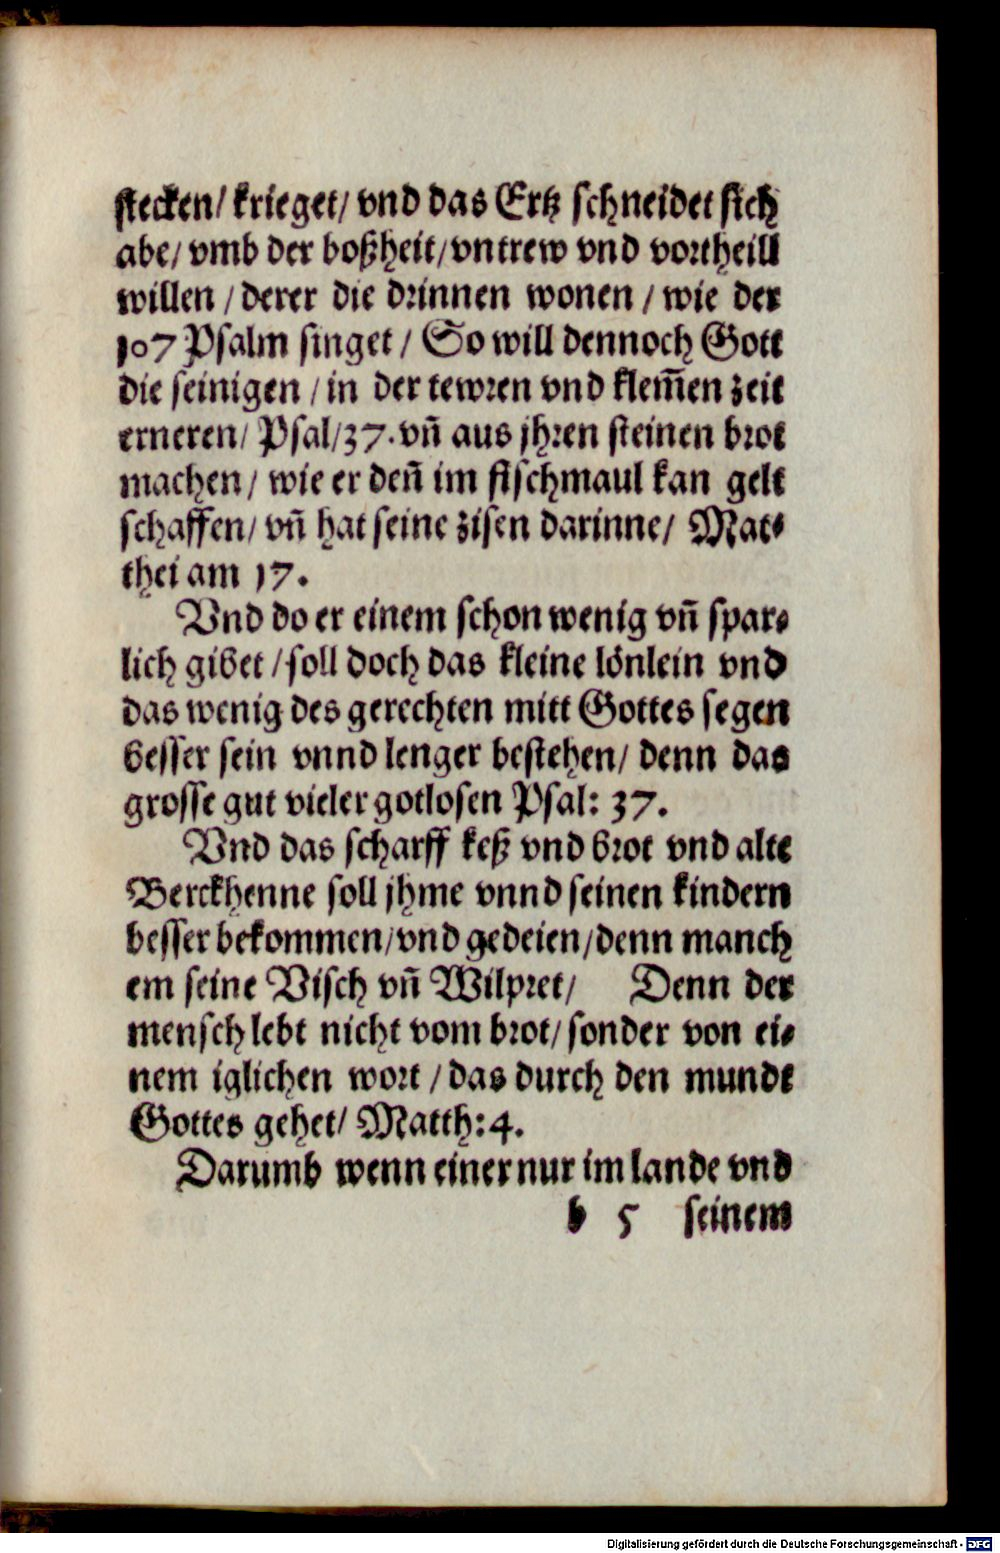 stecken/ krieget/ vnd das Ertz schneidet sich
abe/ vmb der boßheit/ vntrew vnd vortheill
willen / derer die drinnen wonen / wie der
107 Psalm singet / So will dennoch Gott
die seinigen / in der tewren vnd klem̃en zeit
erneren/ Psal/37. vñ aus jhren steinen brot
machen/ wie er deñ im fischmaul kan gelt
schaffen/ vñ hat seine zisen darinne/ Mat⸗
thei am 17.
Vnd do er einem schon wenig vñ spar⸗
lich gibet / soll doch das kleine lönlein vnd
das wenig des gerechten mitt Gottes segen
besser sein vnnd lenger bestehen/ denn das
grosse gut vieler gotlosen Psal: 37.
Vnd das scharff keß vnd brot vnd alte
Berckhenne soll jhme vnnd seinen kindern
besser bekommen/ vnd gedeien/ denn manch
em seine Visch vñ Wilpret/ Denn der
mensch lebt nicht vom brot/ sonder von ei⸗
nem iglichen wort / das durch den munde
Gottes gehet/ Matth: 4.
Darumb wenn einer nur im lande vnd
b 5 seinem
Digitalisierung gefördert durch die Deutsche Forschungsgemeinschaft - DFG